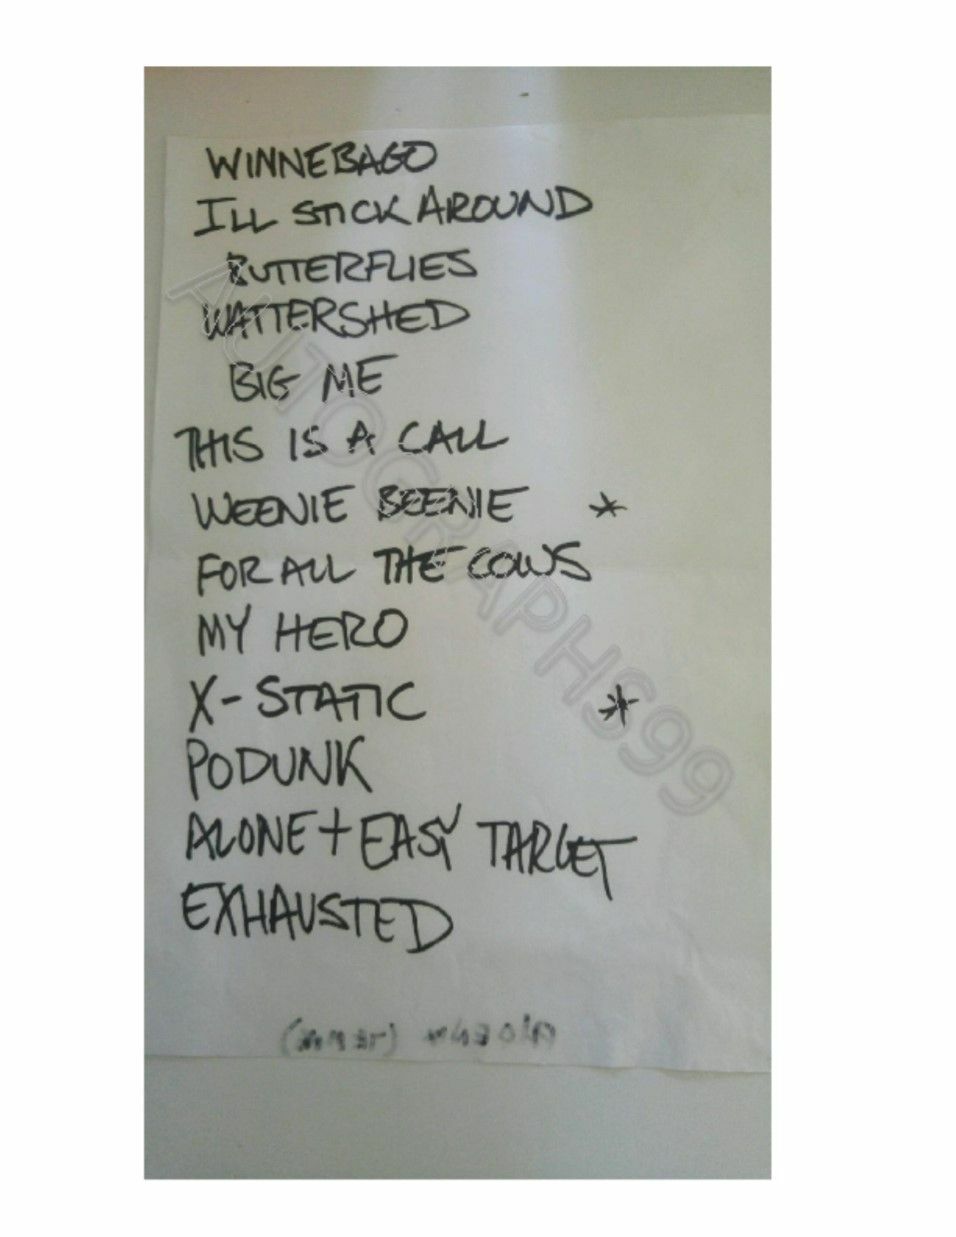 WINNEBAGO
ILL STICK AROUND
BUTTERFLIES
WATTERSHED
BIG ME
THIS IS A CALL
WEENIE BEENIE *
FOR ALL THE COWS
MY HERO
X-STATIC *
PODUNK
ALONE + EASY TARGET
EXHAUSTED
AUTOGRAPHS99